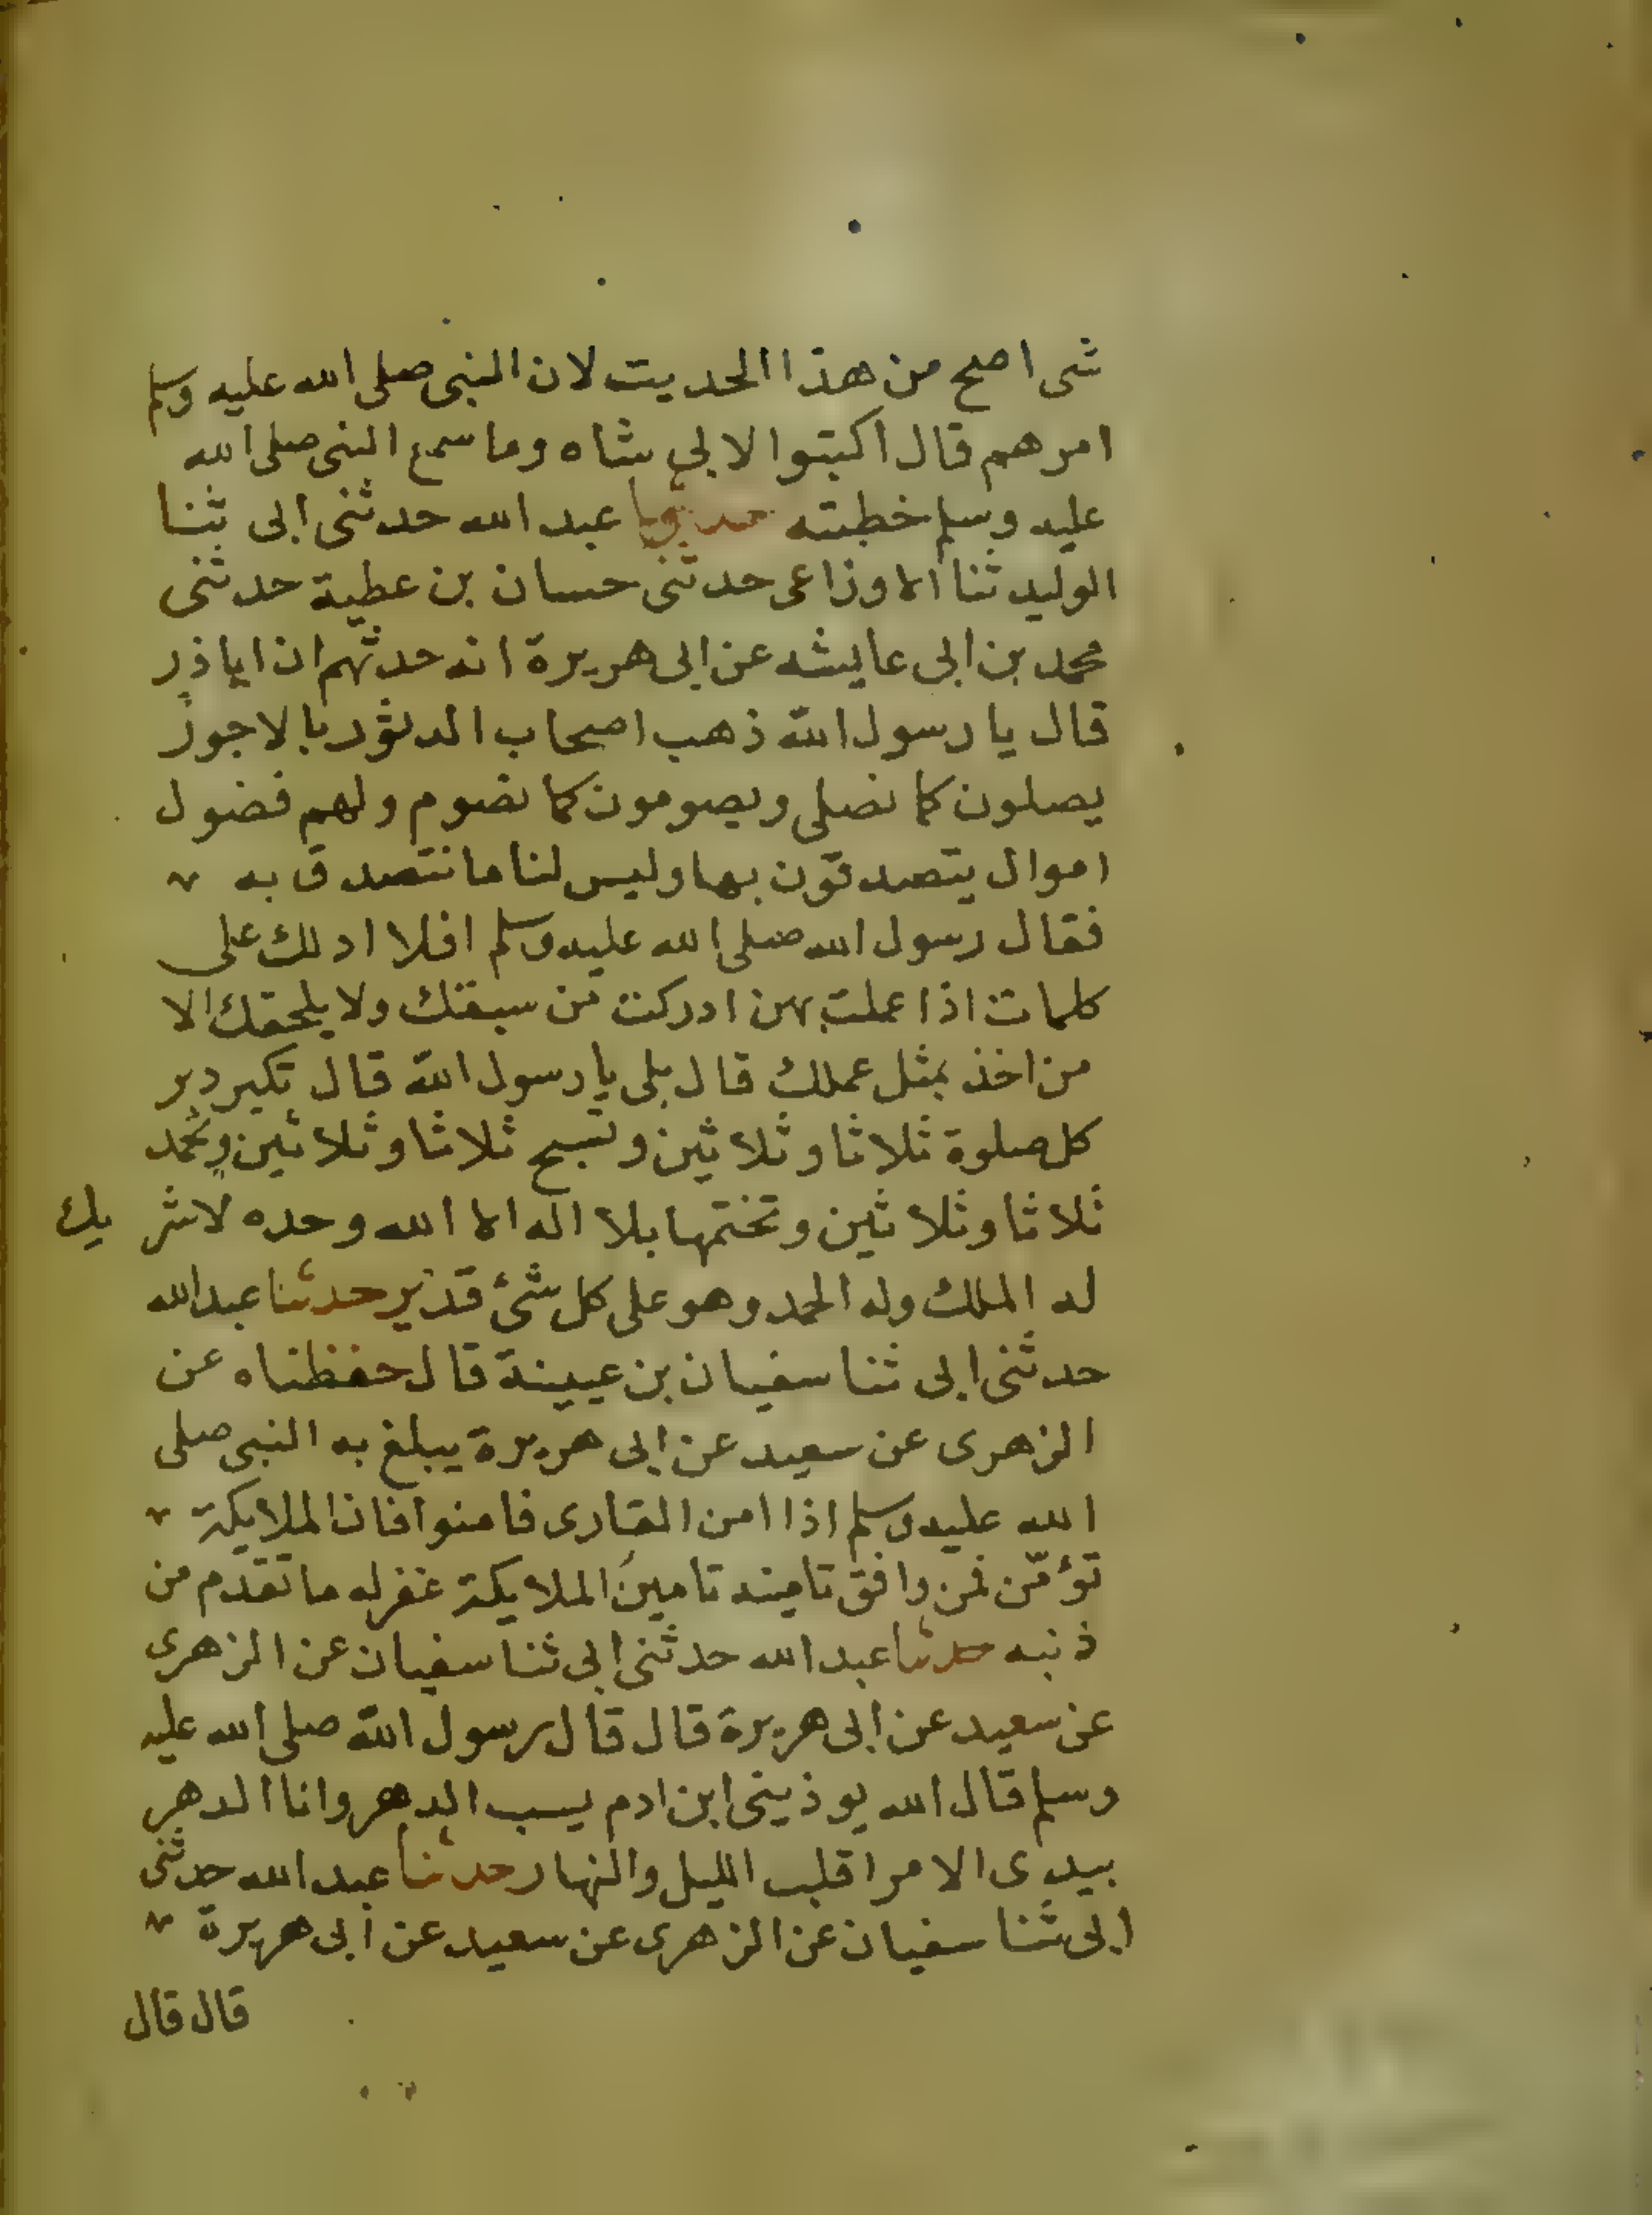 شى اصح من هذا الحديت لان النبى صلى الله عليه وسلم
امرهم قال اكتبوا لابى شاه وما سمع النبى صلى الله
عليه وسلم خطبته حدثنا عبد الله حدثنى ابى ثنا
الوليد ثنا الاوزاعى حدثنى حسان بن عطية حدثنى
محمد بن ابى عايشه عن ابى هريرة انه حدثهم ان اباذر
قال يا رسول الله ذهب اصحاب الدثور بالاجور
يصلون كما نصلى ويصومون كما نصوم ولهم فضول
اموال يتصدقون بها وليس لنا ما نتصدق به
فقال رسول الله صلى الله عليه وسلم افلا ادلك على
كلمات اذا عملت بهن ادركت من سبقك ولا يلحقك الا
من اخذ بمثل عملك قال بلى يا رسول الله قال تكبر دبر
كل صلوة ثلاثا وثلاثين وتسبح ثلاثا وثلاثين وتحمد
ثلاثا وثلاثين وتختمها بلا اله الا الله وحده لاشر يك
له الملك وله الحمد وهو على كل شئ قدير حدثنا عبد الله
حدثنى ابى ثنا سفيان بن عيينة قال حفظناه عن
الزهرى عن سعيد عن ابى هريرة يبلغ به النبى صلى
الله عليه وسلم اذا امن القارى فامنوا فان الملايكة
تؤمّن فمن وافق تامينه تامين الملايكة غفر له ما تقدم من
ذنبه حدثنا عبد الله حدثنى ابى ثنا سفيان عن الزهرى
عن سعيد عن ابى هريرة قال قال رسول الله صلى الله عليه
وسلم قال الله يوذينى ابن ادم يسب الدهر وانا الدهر
بيدى الامر اقلب الليل والنهار حدثنا عبد الله حدثنى
ابى ثنا سفيان عن الزهرى عن سعيد عن ابى هريرة
قال قال